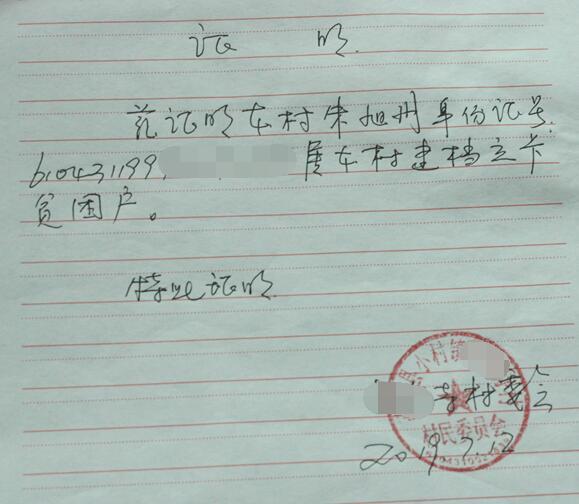 证 明
兹证明本村朱旭州身份证号
610431199 属本村建档立卡
贫困户。
特此证明
村委会
村民委员会